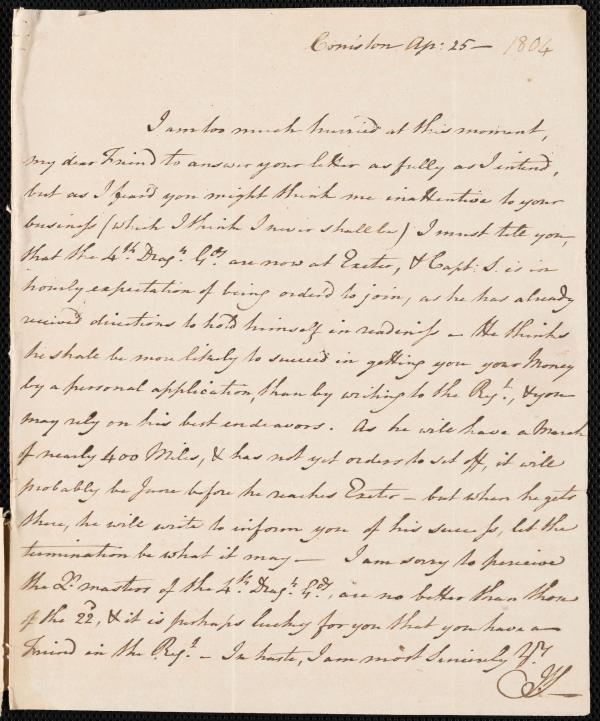 Coniston Ap: 25 — 1804
I am too much hurried at this moment,
my dear Friend to answer your letter as fully as I intend,
but as I feard you might think me inattentive to your
business (which I think I never shall be) I must tell you,
that the 4th Dragn Gds are now at Exeter, & Capt: S. is in
hourly expectation of being orderd to join, as he has already
received directions to hold himself in readiness — He thinks
he shall be more likely to succeed in getting you your Money
by a personal application, than by writing to the Regt, & you
may rely on his best endeavors. As he will have a March
of nearly 400 Miles, & has not yet orders to set off, it will
probably be June before he reaches Exeter — but when he gets
there, he will write to inform you of his success, let the
termination be what it may — I am sorry to perceive
the Qr masters of the 4th Dragn Gds, are no better than those
of the 22d, & it is perhaps lucky for you that you have a
Friend in the Regt — In haste, I am most Sincerely Yrs